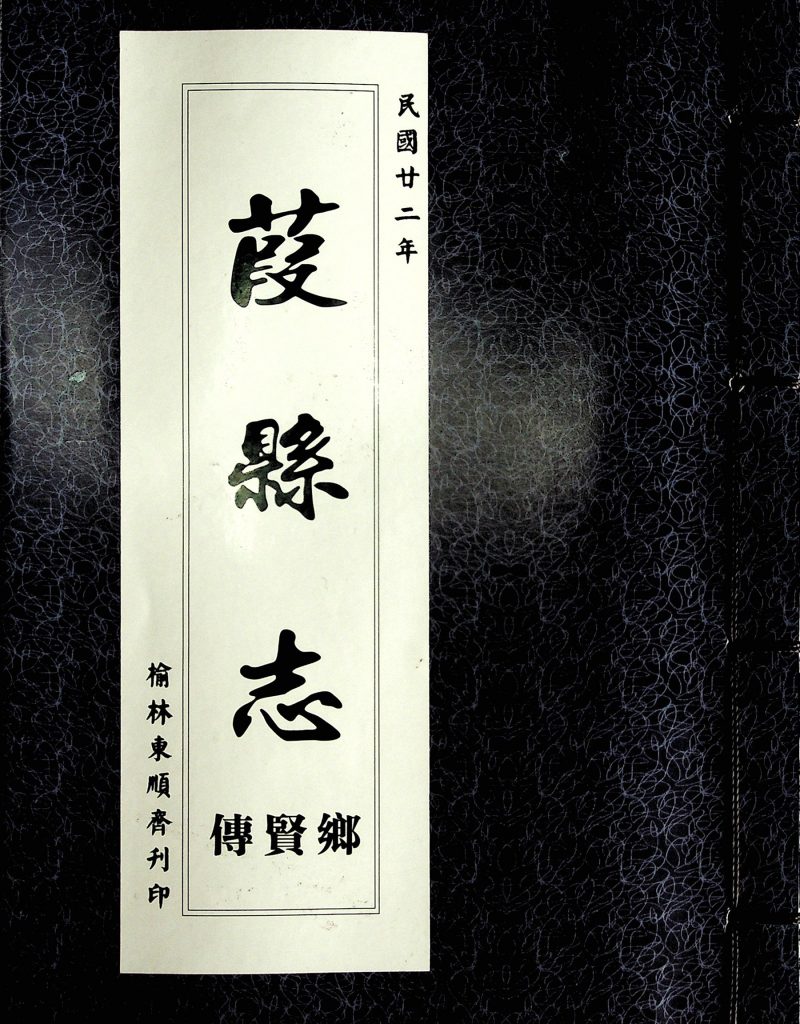 民國廿二年
葭縣志
鄉賢傳
榆林東順齊刊印